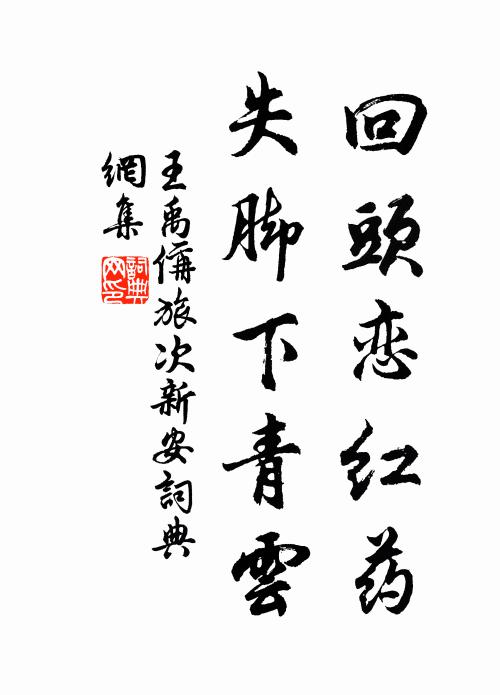 回頭恋红药
失脚下青雲
王禹偁旅次新安詞典
網集
詞典
网印